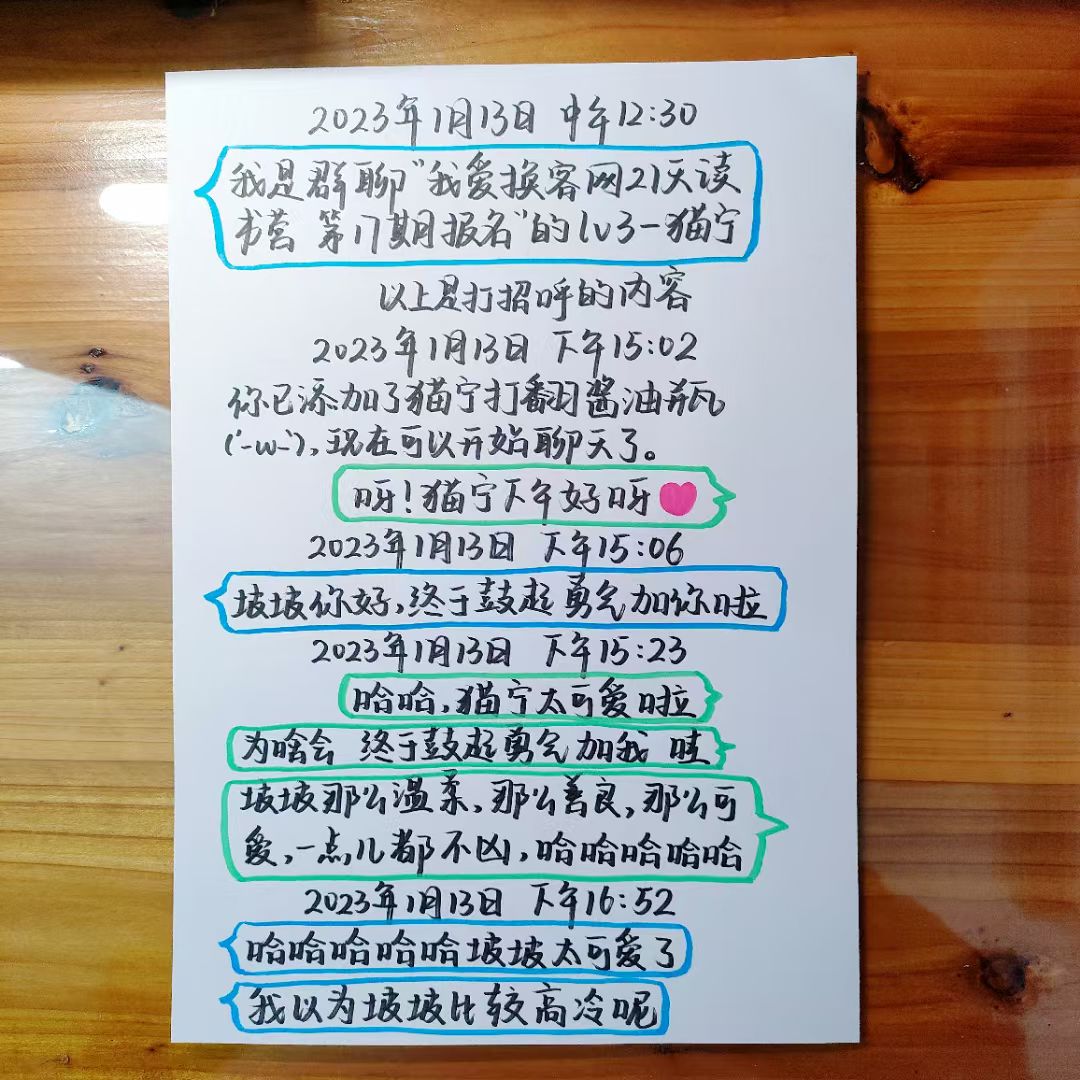 2023年1月13日 中午12:30
我是群聊"我爱换客网21天读
书营 第17期报名"的lv3-猫宁
以上是打招呼的内容
2023年1月13日 下午15:02
你已添加了猫宁打翻酱油瓶
('-ω-`),现在可以开始聊天了。
呀!猫宁下午好呀
2023年1月13日 下午15:06
坡坡你好,终于鼓起勇气加你啦
2023年1月13日 下午15:23
哈哈,猫宁太可爱啦
为啥会 终于鼓起勇气加我 哇
坡坡那么温柔,那么善良,那么可
爱,一点儿都不凶,哈哈哈哈哈
2023年1月13日 下午16:52
哈哈哈哈哈坡坡太可爱了
我以为坡坡比较高冷呢